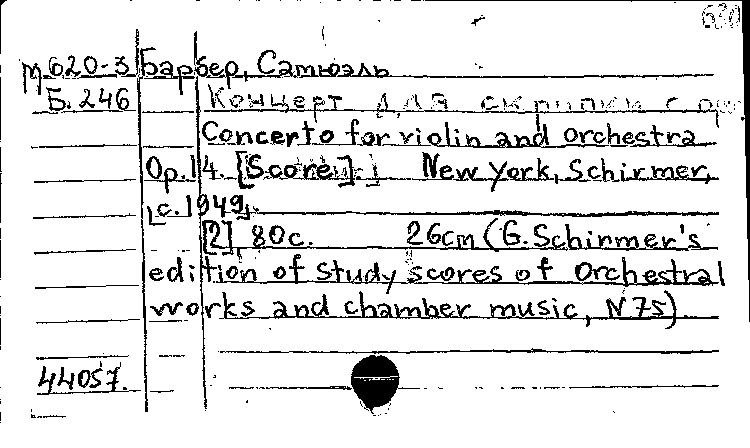 630
М620-3 Барбер, Самюэль
Б. 246 Концерт для скрипки с
Concerto for violin and orchestra
Op.14. [Score]. New York, Schirmer,
[c. 1949].
[2], 80c. 26cm (G. Schirmer's
edition of study scores of orchestral
works and chamber music, N75)
44057.